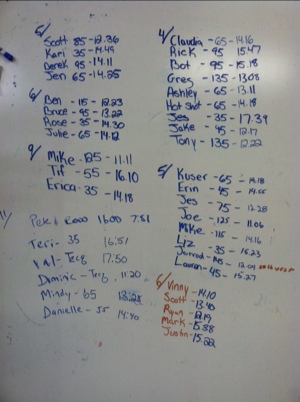 5/
Scott 85 - 12.36
Kari 35 - 14.49
Derek 95 - 14.11
Jen 65 - 14.25
6/
Ben - 115 - 12.23
Bruce - 95 - 13.22
Rose - 35 - 14.30
Jake - 65 - 14.12
9/
Mike - 135 - 11.11
Tif - 55 - 16.10
Erica - 35 - 14.18
11/
Pete 1600 7:51
Teri - 35 16:51
Val - 17:50
Dominic - 11:20
Mindy - 65 13:25
Danielle - 55 14:40
4/
Claudia - 65 - 14.16
Rick - 95 15.47
Bot - 95 - 15.18
Greg - 135 - 13.08
Ashley - 65 - 13.11
Hot Shot - 65 - 14.18
Jes - 35 - 17.39
Jake - 95 - 12.17
Tony - 135 - 12.22
5/
Kuser - 65 - 14.18
Erin - 45 -
Jes - 75 - 12.28
Joe - 125 - 11.06
Mike - 115 - 14.16
Liz - 35 - 15.23
Jarrod - 12.09
Lauren - 45 - 15.27
6/
Vinny - 14.10
Scott - 13.40
Ryan -
Mark - 15.38
Justin - 15.22